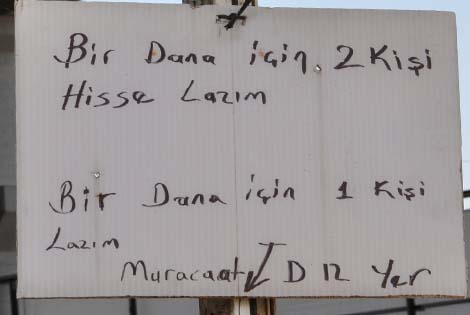 Bir Dana için 2 Kişi
Hisse Lazım
Bir Dana için 1 Kişi
Lazım
Muracaat ↓ D 12 Yer